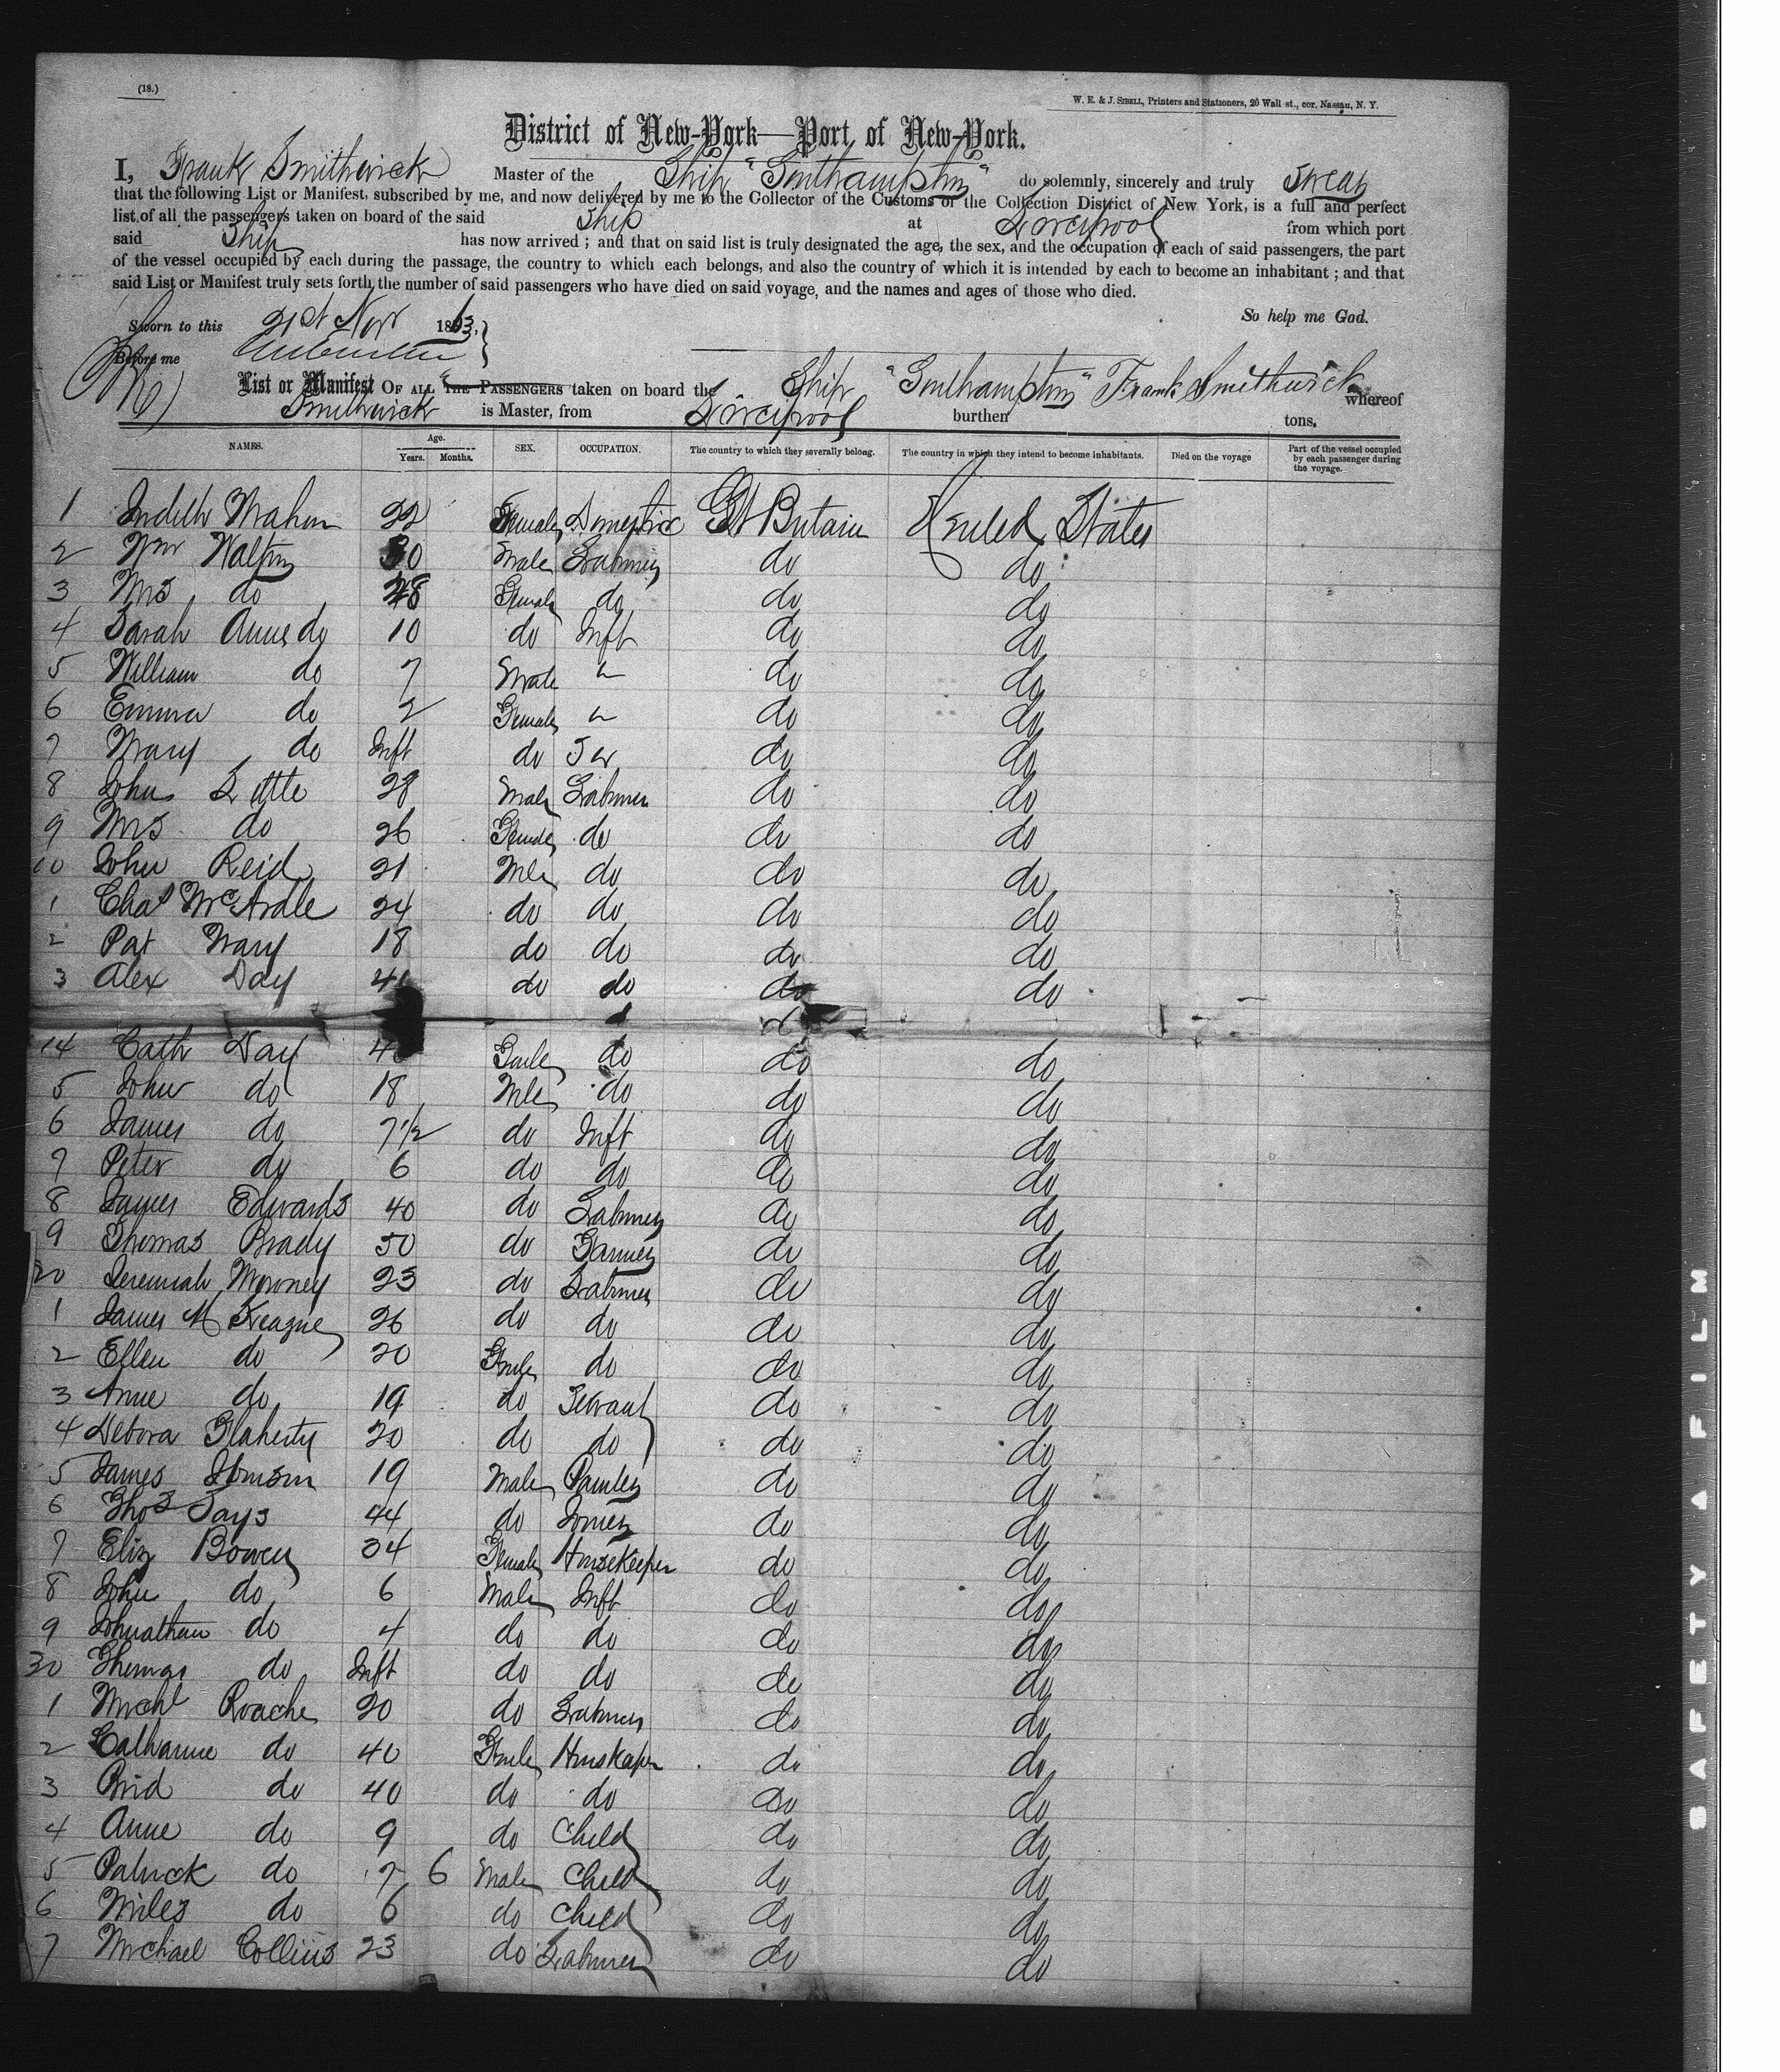 (18.)
W. E. & J. SIBELL, Printers and Stationers, 20 Wall st., cor. Nassau, N. Y.
District of New-York—Port of New-York.
I, Frank Smithwick Master of the Ship "Southampton" do solemnly, sincerely and truly swear
that the following List or Manifest, subscribed by me, and now delivered by me to the Collector of the Customs of the Collection District of New York, is a full and perfect
list of all the passengers taken on board of the said Ship at Liverpool from which port
said Ship has now arrived ; and that on said list is truly designated the age, the sex, and the occupation of each of said passengers, the part
of the vessel occupied by each during the passage, the country to which each belongs, and also the country of which it is intended by each to become an inhabitant ; and that
said List or Manifest truly sets forth the number of said passengers who have died on said voyage, and the names and ages of those who died.
So help me God.
Sworn to this 21st Nov 1863,
Before me
List or Manifest OF ALL THE PASSENGERS taken on board the Ship "Southampton" Frank Smithwick whereof
Smithwick is Master, from Liverpool burthen tons.
NAMES. Age. Years. Months. SEX. OCCUPATION. The country to which they severally belong. The country in which they intend to become inhabitants. Died on the voyage Part of the vessel occupied by each passenger during the voyage.
1 Judith Mahon 22 Female Domestic Gt Britain United States
2 Wm Walton 30 Male Labourer do do
3 Mrs do 48 Female do do do
4 Sarah Anne do 10 do Inft do do
5 William do 7 Male " do do
6 Emma do 2 Female " do do
7 Mary do Inft do do do
8 John Little 28 Male Labourer do do
9 Mrs do 26 Female do do do
10 John Reid 21 Mle do do do
1 Chas McArdle 24 do do do do
2 Pat Mary 18 do do do do
3 Alex Day 40 do do do do
14 Cath Day 40 Fmle do do do
5 John do 18 Mle do do do
6 James do 7½ do Inft do do
7 Peter do 6 do do do do
8 James Edwards 40 do Labourer do do
9 Thomas Brady 50 do Farmer do do
20 Jeremiah Mooney 23 do Labourer do do
1 James M Teague 26 do do do do
2 Ellen do 20 Fmle do do do
3 Anne do 19 do Servant do do
4 Debora Flaherty 20 do do do do
5 James Johnson 19 Male Painter do do
6 Thos Says 44 do Joiner do do
7 Eliz Bowen 34 Female Housekeeper do do
8 John do 6 Male Inft do do
9 Johnathan do 4 do do do do
30 Thomas do Inft do do do do
1 Michl Roache 20 do Labourer do do
2 Catharine do 40 Fmle Houskeper do do
3 Brid do 40 do do do do
4 Anne do 9 do Child do do
5 Patrick do 7 6 Male Child do do
6 Miles do 6 do Child do do
7 Michael Collins 23 do Labourer do do
SAFETY A FILM